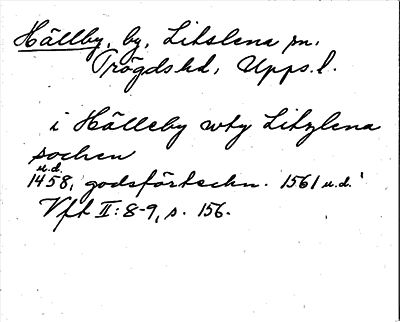 Hällby, by, Litslena sn.
Trögds hd, Upps. l.
i Hälleby wty Litzlena
sochen
u.d.
1458, godsförteckn. 1561 u.d.
Vft II:8-9, s. 156.